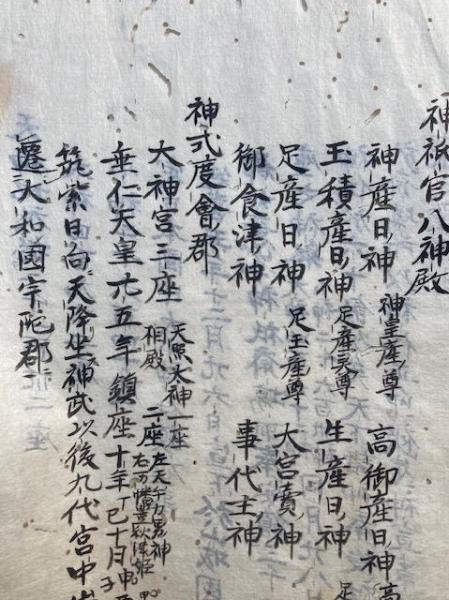 神祇官八神殿
神産日神 神皇産尊 高御産日神 高
玉積産日神 足産灵尊 生産日神 足
足産日神 足玉産尊 大宮賣神
御食津神 事代主神
神式度會郡
大神宮三座 天照太神一座 相殿 二座 左天手力男神 右万幡豊秋津姫
垂仁天皇廿五年鎮座十年丁巳十月甲子
筑紫日向天降坐神武以後九代宮中
遷大和國宇陀郡